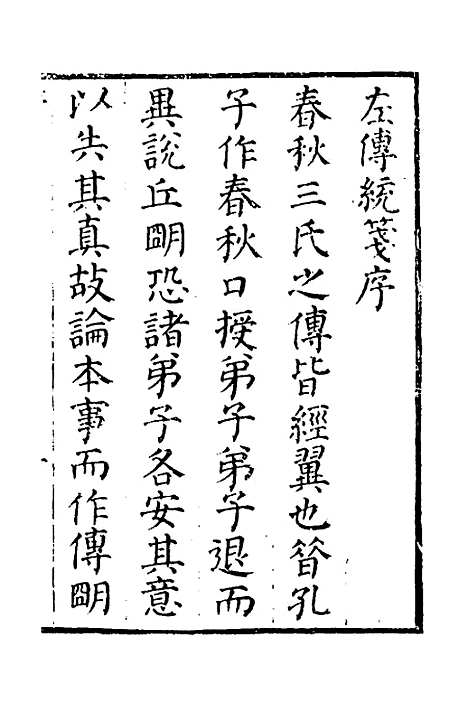 左傳統箋序
春秋三氏之傳皆經翼也昝孔
子作春秋口授弟子弟子退而
異說丘明恐諸弟子各安其意
以失其真故論本事而作傳明